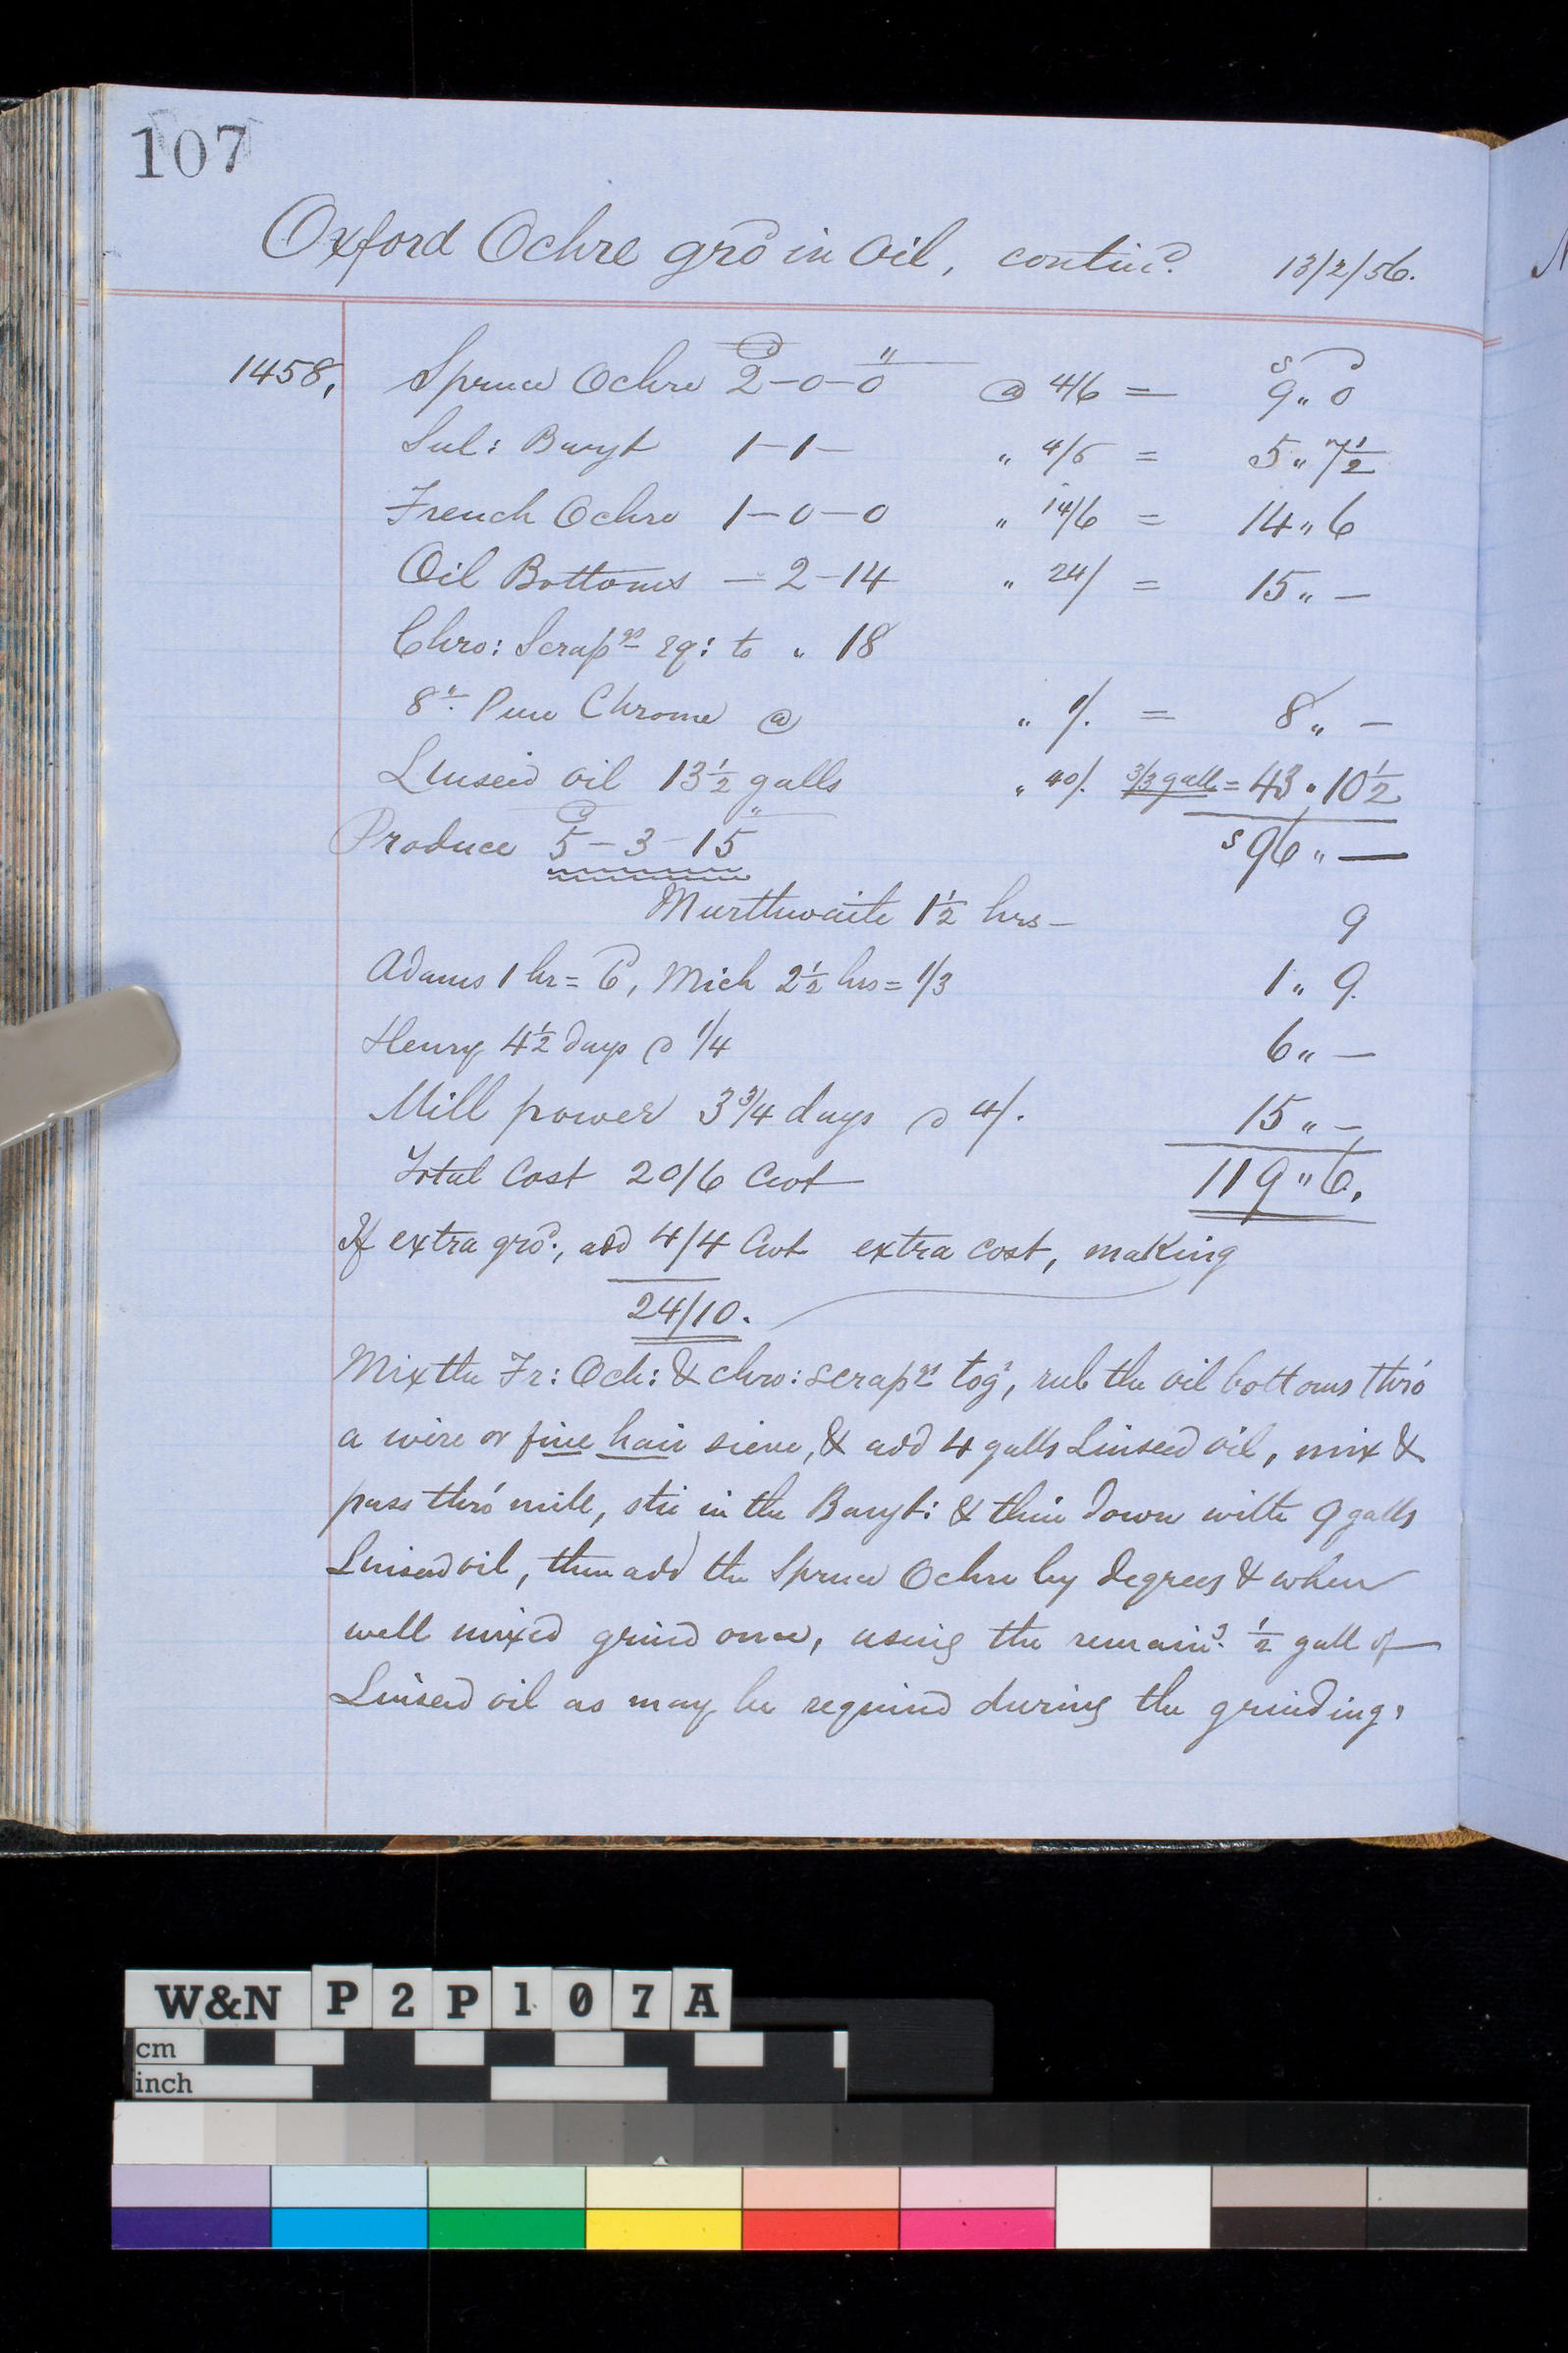 107
Oxford Ochre gro^d in Oil, contin^d. 13/2/56.
1458, Spruce Ochre 2-0-0 @ 4/6 = 9 " 0
Sul: Baryt 1-1- " 4/6 = 5 " 7½
French Ochre 1-0-0 " 14/6 = 14 " 6
Oil Bottoms - 2-14 " 24/ = 15 " -
Chro: Scrap^gs eq: to " 18
8" Pure Chrome @ " 1/. = 8 " -
Linseed oil 13½ galls " 40/. 3/3 gall = 43 " 10½
Produce 5-3-15 s 96 " -
Murthwaite 1½ hrs - 9
Adams 1 hr = 6^d, Mich 2½ hrs = 1/3 1 " 9.
Henry 4½ days @ 1/4 6 " -
Mill power 3¾ days @ 4/. 15 " -
Total Cost 20/6 Cwt 119 " 6.
If extra gro^d., add 4/4 Cwt extra cost, making
24/10.
Mix the Fr: Och: & chro: scrap^gs tog^r, rub the oil bottoms thro'
a wire or fine hair sieve, & add 4 galls Linseed oil, mix &
pass thro' mill, stir in the Baryt: & thin down with 9 galls
Linseed oil, then add the Spruce Ochre by degrees & when
well mixed grind once, using the remain^g. ½ gall of
Linseed oil as may be required during the grinding.
W&N P2P107A
cm
inch